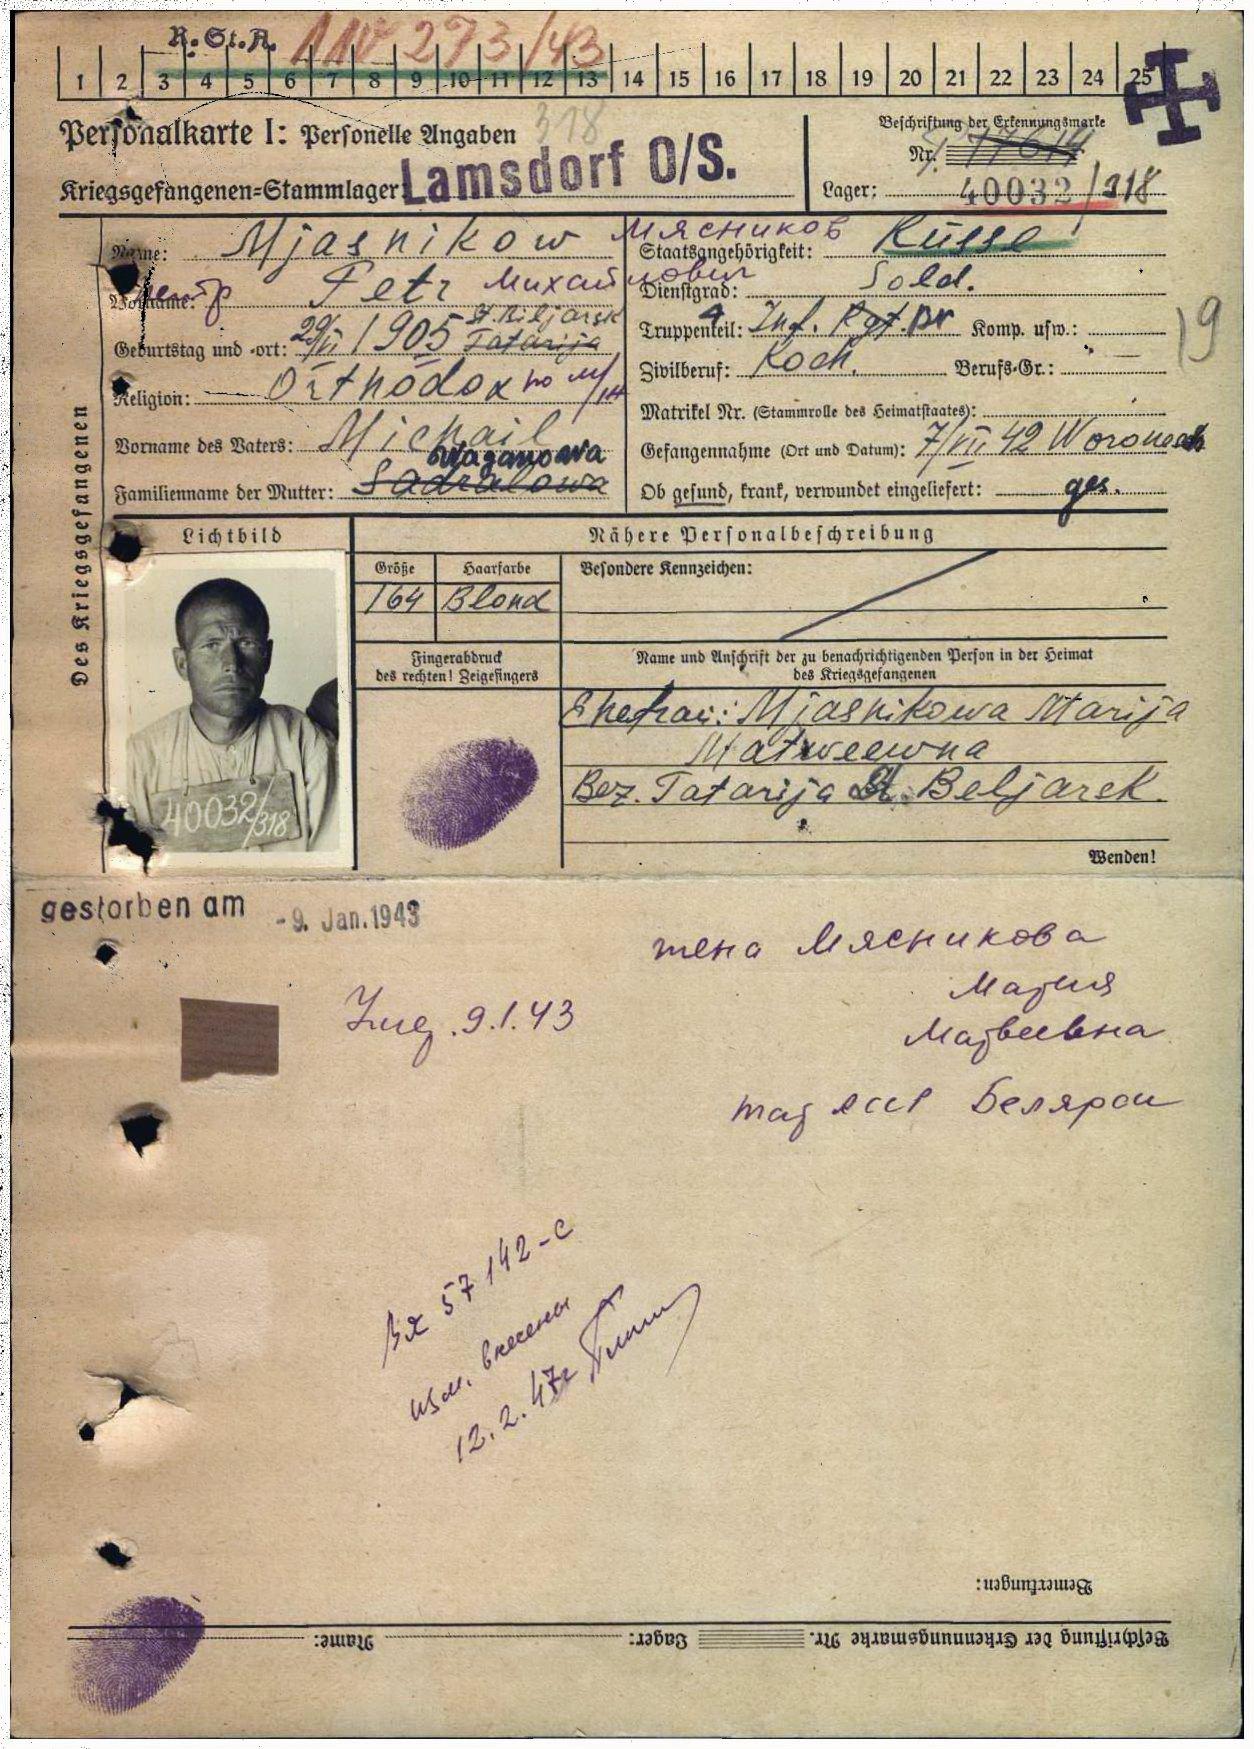 R. St. A. 273/43
1 2 3 4 5 6 7 8 9 10 11 12 13 14 15 16 17 18 19 20 21 22 23 24 25
318
Personalkarte I: Personelle Angaben
Kriegsgefangenen-Stammlager: Lamsdorf O/S.
Beschriftung der Erkennungsmarke
Nr. 17614
Lager: 40032/318
Des Kriegsgefangenen
Name: Mjasnikow Мясников
Vorname: Петр Petr Михайлович
Geburtstag und -ort: 1905 Tatarija
Religion: Orthodox
Vorname des Vaters: Michail
Familienname der Mutter: Sadralowa Waganowa
Staatsangehörigkeit: Russe
Dienstgrad: Sold.
Truppenteil: Inf. Rgt. Komp. usw.:
Zivilberuf: Koch. Berufs-Gr.:
Matrikel Nr. (Stammrolle des Heimatstaates):
Gefangennahme (Ort und Datum): 7/VII 42 Woronesch
Ob gesund, krank, verwundet eingeliefert: ges.
19
Lichtbild
40032/318
Nähere Personalbeschreibung
Größe Haarfarbe Besondere Kennzeichen:
164 Blond
Fingerabdruck
des rechten! Zeigefingers
Name und Anschrift der zu benachrichtigenden Person in der Heimat
des Kriegsgefangenen
Ehefrau: Mjasnikowa Marija
Matweewna
Bez. Tatarija Beljarsk.
Wenden!
gestorben am -9. Jan. 1943
9.1.43
жена Мясникова
Мария
Матвеевна
Вх 57142-с
изм. внесены
12.2.47г
Bemerkungen:
Beschriftung der Erkennungsmarke Nr. Lager: Name: